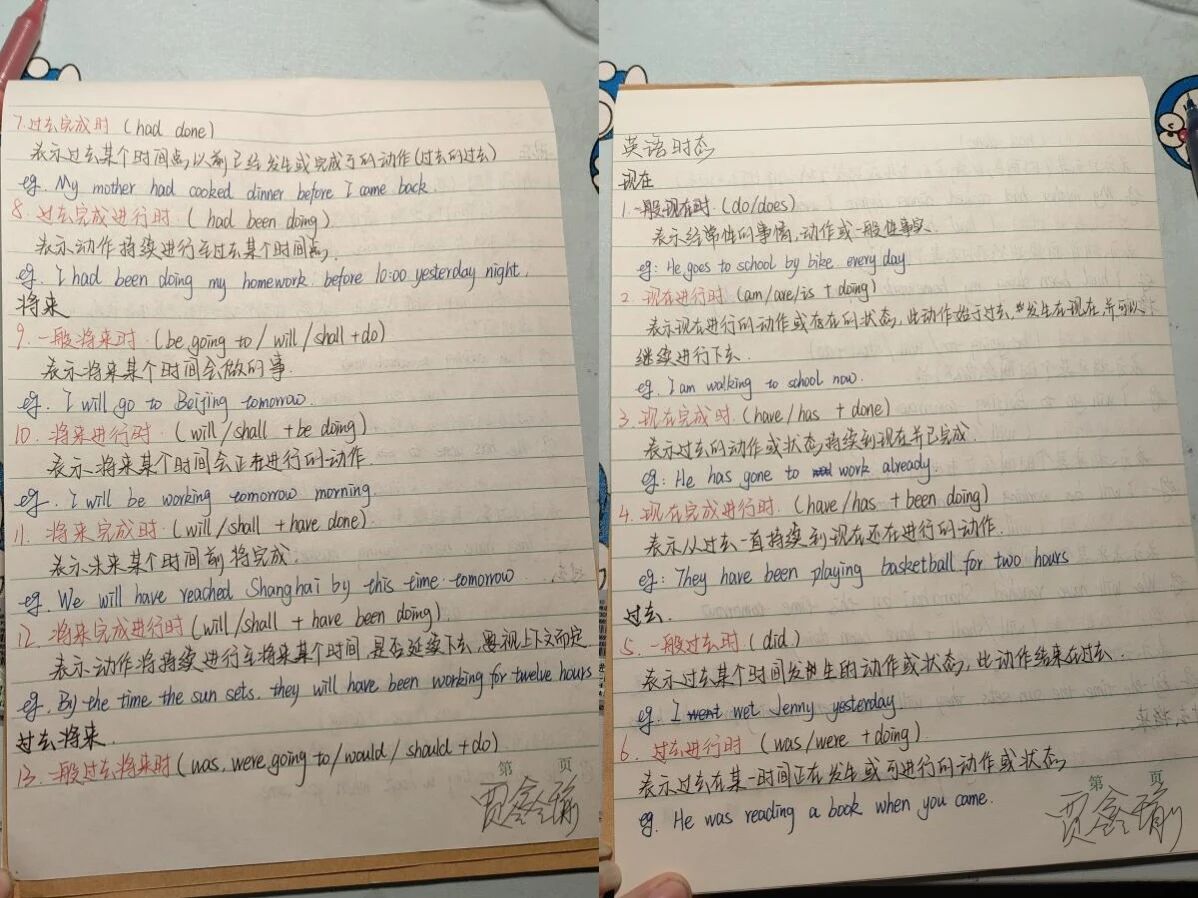 7.过去完成时 (had done)
表示过去某个时间点以前已经发生或完成了的动作(过去的过去)
eg. My mother had cooked dinner before I came back.
8.过去完成进行时. (had been doing)
表示动作持续进行至过去某个时间点.
eg. I had been doing my homework before 10:00 yesterday night.
将来
9.一般将来时. (be going to / will / shall + do)
表示将来某个时间会做的事.
eg. I will go to Beijing tomorrow.
10.将来进行时. (will/shall + be doing)
表示将来某个时间会正在进行的动作.
eg. I will be working tomorrow morning.
11.将来完成时. (will/shall + have done).
表示未来某个时间前将完成.
eg. We will have reached Shanghai by this time tomorrow.
12.将来完成进行时 (will/shall + have been doing).
表示动作将持续进行至将来某个时间,是否延续下去,要视上下文而定.
eg. By the time the sun sets. they will have been working for twelve hours
过去将来.
13.一般过去将来时 (was, were going to / would / should + do)
第 页
贾鑫瑜
英语时态
现在
1.一般现在时. (do/does)
表示经常性的事情,动作或一般性事实.
eg: He goes to school by bike every day
2.现在进行时 (am/are/is + doing)
表示现在进行的动作或存在的状态,此动作始于过去,发生在现在,并可以
继续进行下去.
eg. I am walking to school now.
3.现在完成时. (have/has + done)
表示过去的动作或状态,持续到现在并已完成.
eg: He has gone to work already.
4.现在完成进行时. (have/has + been doing)
表示从过去一直持续到现在还在进行的动作.
eg: They have been playing basketball for two hours
过去.
5.一般过去时. (did)
表示过去某个时间发生的动作或状态,此动作结束在过去.
eg. I went wet Jenny yesterday
6.过去进行时 (was/were + doing).
表示过去在某一时间正在发生或可进行的动作或状态
eg. He was reading a book when you came.
第 页
贾鑫瑜